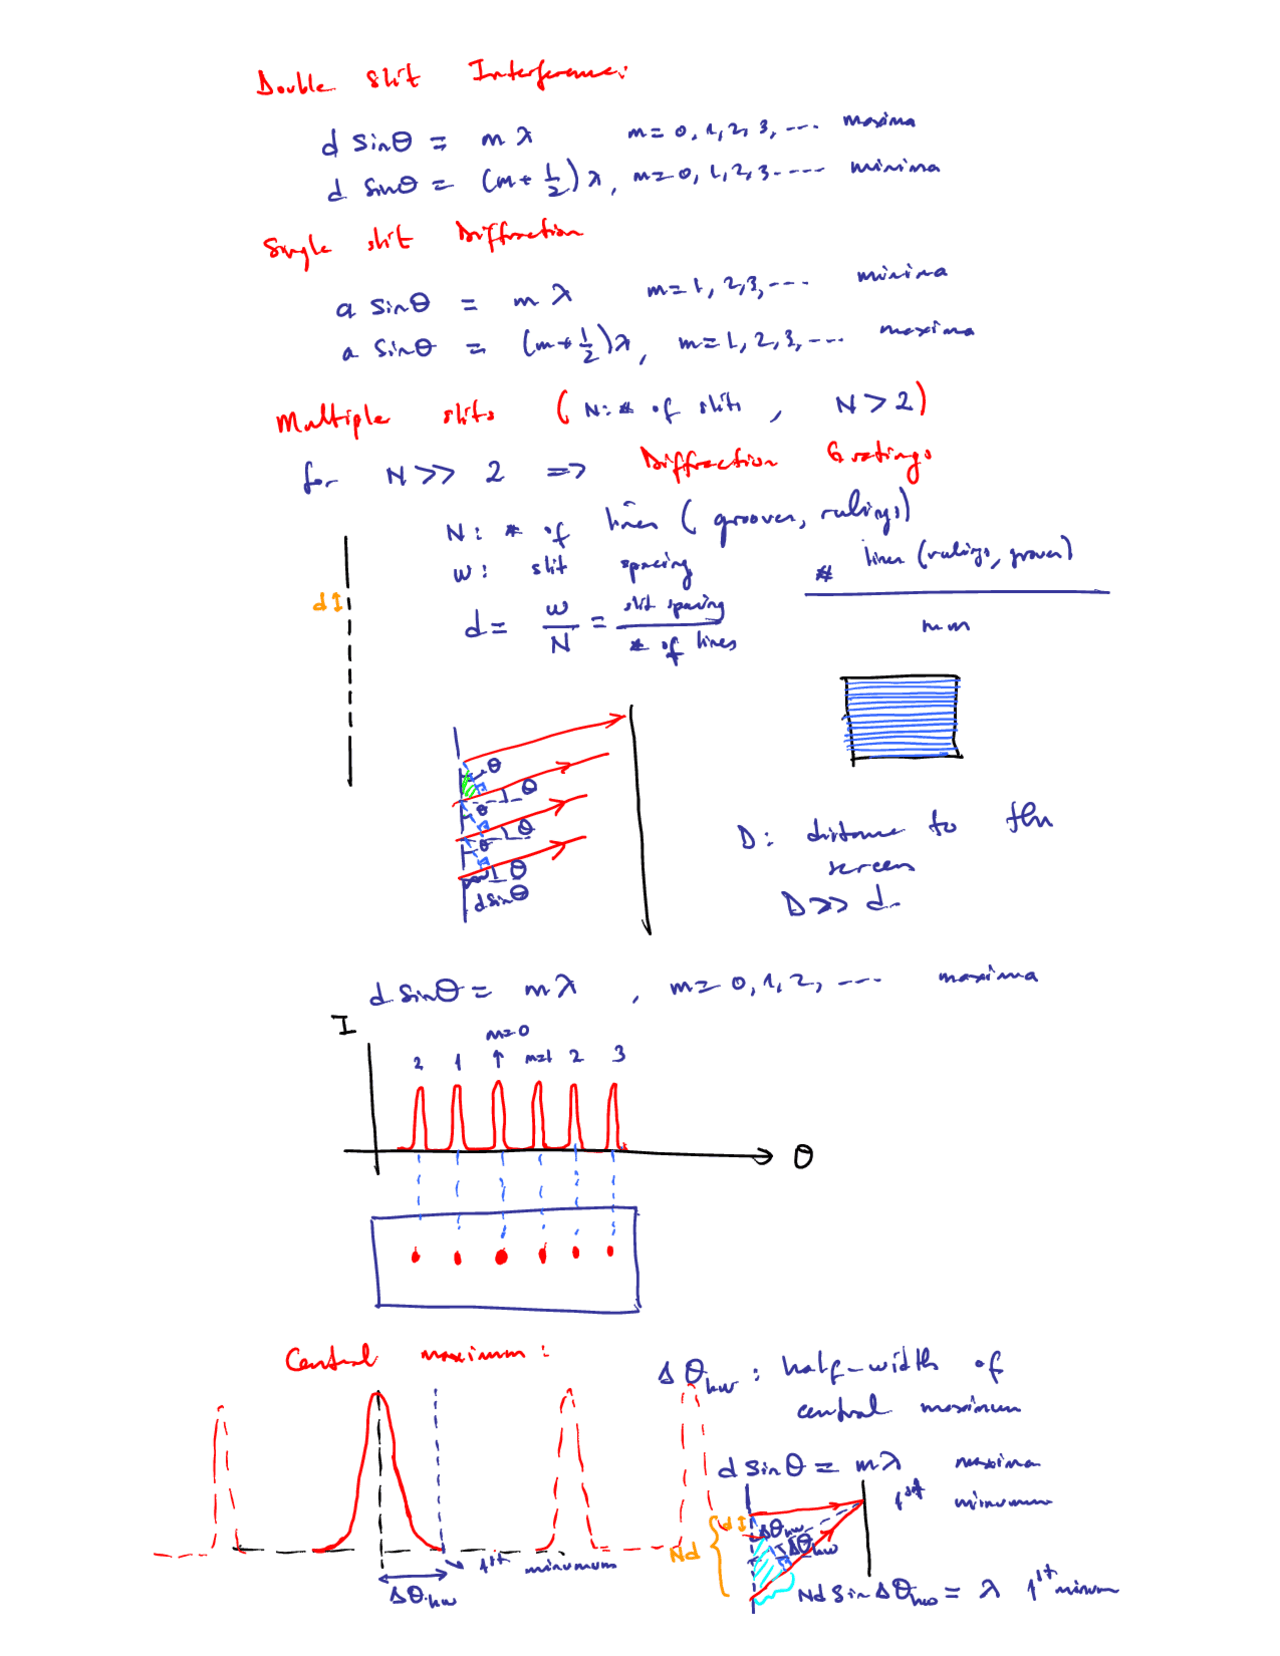 Double slit Interference:
d sinθ = m λ m = 0, 1, 2, 3, .... maxima
d sinθ = (m + 1/2) λ, m = 0, 1, 2, 3 ..... minima
Single slit Diffraction
a sinθ = m λ m = 1, 2, 3, .... minima
a sinθ = (m + 1/2) λ, m = 1, 2, 3, .... maxima
Multiple slits ( N: # of slits , N > 2)
for N >> 2 => Diffraction Gratings
N: # of lines ( grooves, rulings)
w: slit spacing
# lines (rulings, grooves)
mm
d I
d = w/N = slit spacing / # of lines
θ
θ
θ
θ
θ
θ
d sinθ
D: distance to the
screen
D >> d.
d sinθ = m λ , m = 0, 1, 2, .... maxima
I
m=0
2 1 ↑ m=1 2 3
θ
Central maximum:
Δθhw : half-width of
central maximum
d sinθ = m λ maxima
1st minimum
d I
Δθhw
Δθhw
Nd
1st minumum
Δθhw
Nd sin Δθhw = λ 1st minum